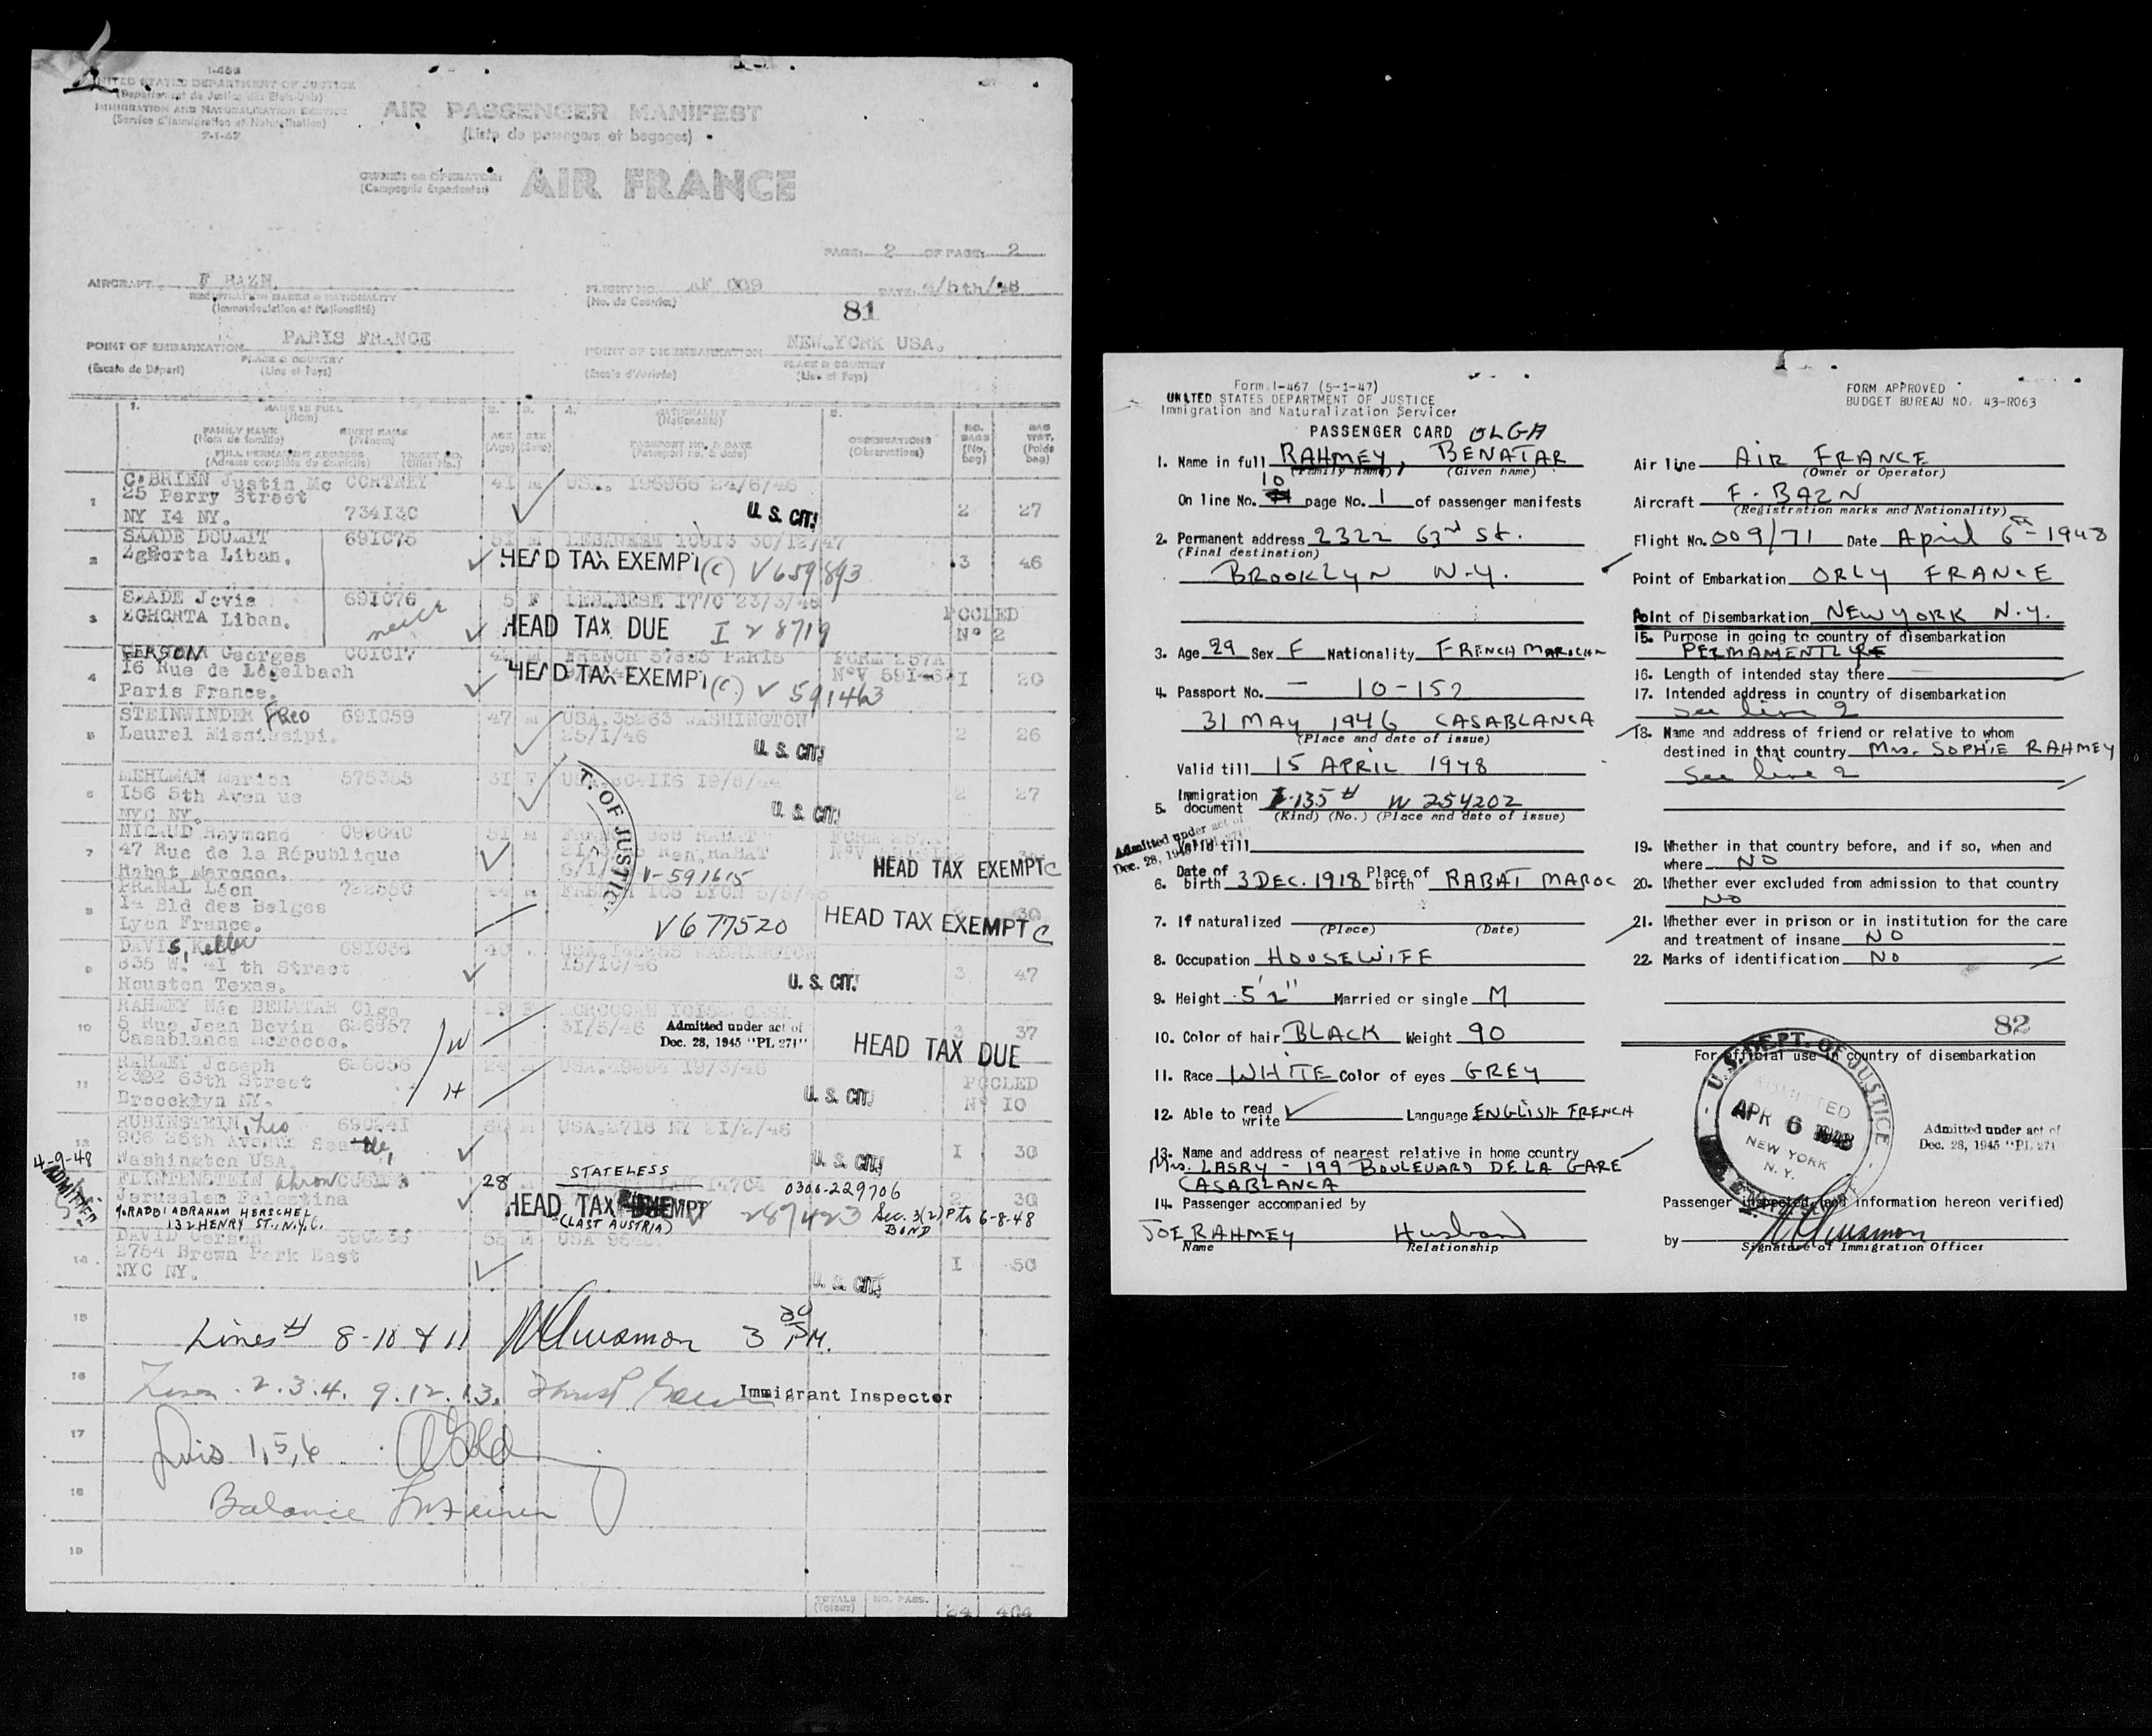 I-466
UNITED STATES DEPARTMENT OF JUSTICE
(Departement de Justice des Etats-Unis)
IMMIGRATION AND NATURALISATION SERVICE
(Service d'Immigration et Naturalisation)
7-1-47
AIR PASSENGER MANIFEST
(Liste de passagers et bagages)
OWNER OR OPERATOR:
AIR FRANCE
PAGE: 2 OF PAGE: 2
AIRCRAFT F BAZN
(Immatriculation et Nationalité)
FLIGHT NO. AF 009
(No. de Courrier)
DATE:
81
POINT OF EMBARKATION PARIS FRANCE
PLACE & COUNTRY
(Escale de Départ)
(Lieu et Pays)
POINT OF DISEMBARKATION NEW YORK USA.
PLACE & COUNTRY
(Escale d'Arrivée)
(Lieu et Pays)
1. NAME IN FULL
(Nom)
FAMILY NAME GIVEN NAME
(Nom de famille) (Prénom)
FULL PERMANENT ADDRESS TICKET NO.
(Adresse complète de domicile) (Billet No.)
2. AGE (Age)
3. SEX (Sexe)
4. NATIONALITY
(Nationalité)
PASSPORT NO. & DATE
(Passeport no. & date)
5. OBSERVATIONS
(Observations)
NO. BAGS (No. bag)
BAG WGT. (Poids bag)
1 O'BRIEN Justin Mc CORTNEY 41 M USA. 24/6/46
25 Perry Street
NY I4 NY. 734130 U. S. CIT. 2 27
2 SAADE DOUMIT 691075 51 M LEBANESE 10913 30/12/47
Zghorta Liban. HEAD TAX EXEMPT (C) V659893 3 46
3 SAADE Jovia 691076 5 F LEBANESE 1770 23/3/48
niece
ZGHORTA Liban. HEAD TAX DUE I 28719 POOLED N° 2
4 GERSON Georges 001017 FRENCH PARIS FORM 257A
16 Rue de Logelbach N°V 591463 I 20
Paris France. HEAD TAX EXEMPT (C) V 591463
5 STEINWINDER Freo 691059 47 M USA. 35263 WASHINGTON
Laurel Mississipi. 25/1/46 U. S. CIT. 2 26
6 MEHLMAN Marion 575355 31 F
156 5th Aven ue
NYC NY. U. S. CIT. 2 27
7 NICAUD Raymond 099040 51 M RABAT FORM
47 Rue de la République RABAT
Rabat Marocco. V-591615 HEAD TAX EXEMPT C
T. OF JUSTICE
8 PRANAL Léon 44 M FRENCH 105 LYON
14 Bld des Belges
Lyon France. V677520 HEAD TAX EXEMPT C 30
9 DAVIS, Keller 691038 40 USA. WASHINGTON
835 W. 41 th Street 15/10/46
Houston Texas. U. S. CIT. 3 47
10 RAHMEY Née BENATAR Olga 29 F MOROCCAN 10152 CASA
5 Rue Jean Bovin 626857 31/5/46
Casablanca Morocco. W
Admitted under act of
Dec. 28, 1945 "PL 271"
HEAD TAX DUE 3 37
11 RAHMEY Joseph 626856 24 M USA. 19/3/46
2322 63th Street H
Broocklyn NY. U. S. CIT. POOLED N° 10
12 RUBINSTEIN, Leo 690241 60 M USA. 2718 NY 21/2/46
906 26th Avenue Seattle,
Washington USA. U. S. CIT. I 30
4-9-48
ADMITTED
13 FLINTENSTEIN Ahron 28 M STATELESS 14704 0300-229706
Jerusalem Palestina HEAD TAX EXEMPT 2 30
℅ RABBI ABRAHAM HERSCHEL (LAST AUSTRIA) 287423 Sec. 3(2) P to 6-8-48
132 HENRY ST., N.Y.C. BOND
14 DAVID Gerson 690236 58 M USA
2754 Brown Park East
NYC NY. U. S. CIT. I 50
15 Lines # 8-10 & 11 3 30 P.M.
16 Lines 2.3.4. 9.12.13. Immigrant Inspector
17 1, 5, 6
18 Balance
19
TOTALS (Totaux) NO. PASS. 24 404
Form I-467 (5-1-47)
UNITED STATES DEPARTMENT OF JUSTICE
Immigration and Naturalization Service
FORM APPROVED
BUDGET BUREAU NO. 43-R063
PASSENGER CARD OLGA
1. Name in full RAHMEY, BENATAR
(Family name) (Given name)
On line No. 10 page No. 1 of passenger manifests
2. Permanent address 2322 63rd St.
(Final destination)
BROOKLYN N.Y.
3. Age 29 Sex F Nationality FRENCH MAROCAN
4. Passport No. - 10-152
31 MAY 1946 CASABLANCA
(Place and date of issue)
Valid till 15 APRIL 1948
5. Immigration document I-135 # W 254202
(Kind) (No.) (Place and date of issue)
Admitted under act of
Dec. 28, 1945 "PL 271"
Valid till
6. Date of birth 3 DEC. 1918 Place of birth RABAT MAROC
7. If naturalized
(Place) (Date)
8. Occupation HOUSEWIFE
9. Height 5'2" Married or single M
10. Color of hair BLACK Weight 90
11. Race WHITE Color of eyes GREY
12. Able to read write Language ENGLISH FRENCH
13. Name and address of nearest relative in home country
Mrs. LASRY - 199 BOULEVARD DE LA GARE
CASABLANCA
14. Passenger accompanied by
JOE RAHMEY Husband
Name Relationship
Air line AIR FRANCE
(Owner or Operator)
Aircraft F. BAZN
(Registration marks and Nationality)
Flight No. 009/71 Date April 6th-1948
Point of Embarkation ORLY FRANCE
Point of Disembarkation NEW YORK N.Y.
15. Purpose in going to country of disembarkation
PERMAMENTLYE
16. Length of intended stay there
17. Intended address in country of disembarkation
See line 2
18. Name and address of friend or relative to whom
destined in that country Mrs. SOPHIE RAHMEY
See line 2
19. Whether in that country before, and if so, when and
where NO
20. Whether ever excluded from admission to that country
NO
21. Whether ever in prison or in institution for the care
and treatment of insane NO
22. Marks of identification NO
82
For official use in country of disembarkation
U. S. DEPT. OF JUSTICE
ADMITTED
APR 6 1948
NEW YORK
N. Y.
Admitted under act of
Dec. 28, 1945 "PL 271
Passenger inspected (and information hereon verified)
by
Signature of Immigration Officer